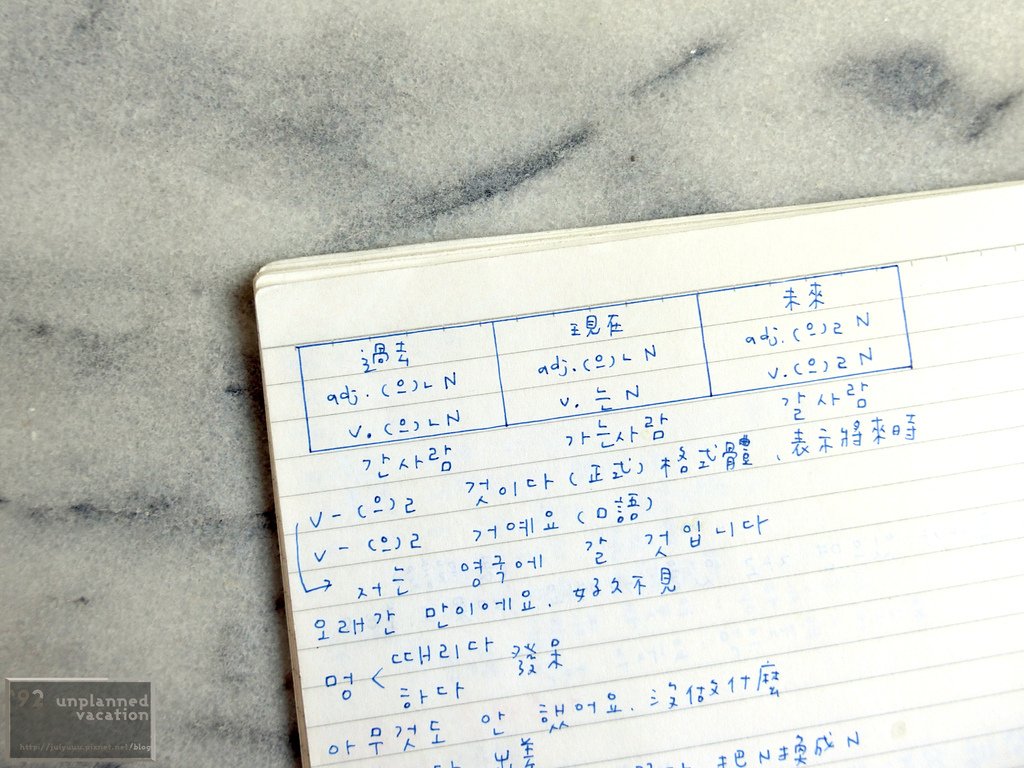 過去 現在 未來
adj. (으)ㄴ N adj. (으)ㄴ N adj. (으)ㄹ N
v. (으)ㄴ N v. 는 N v. (으)ㄹ N
간 사람 가는 사람 갈 사람
v - (으)ㄹ 것이다 (正式) 格式體、表示將來時
v - (으)ㄹ 거예요 (口語)
저는 영국에 갈 것입니다
오래간만이에요. 好久不見
멍 < 때리다 發呆
하다
아무것도 안 했어요. 沒做什麼
把N換成N
92 unplanned
vacation
http://juiyuuu.pixnet.net/blog